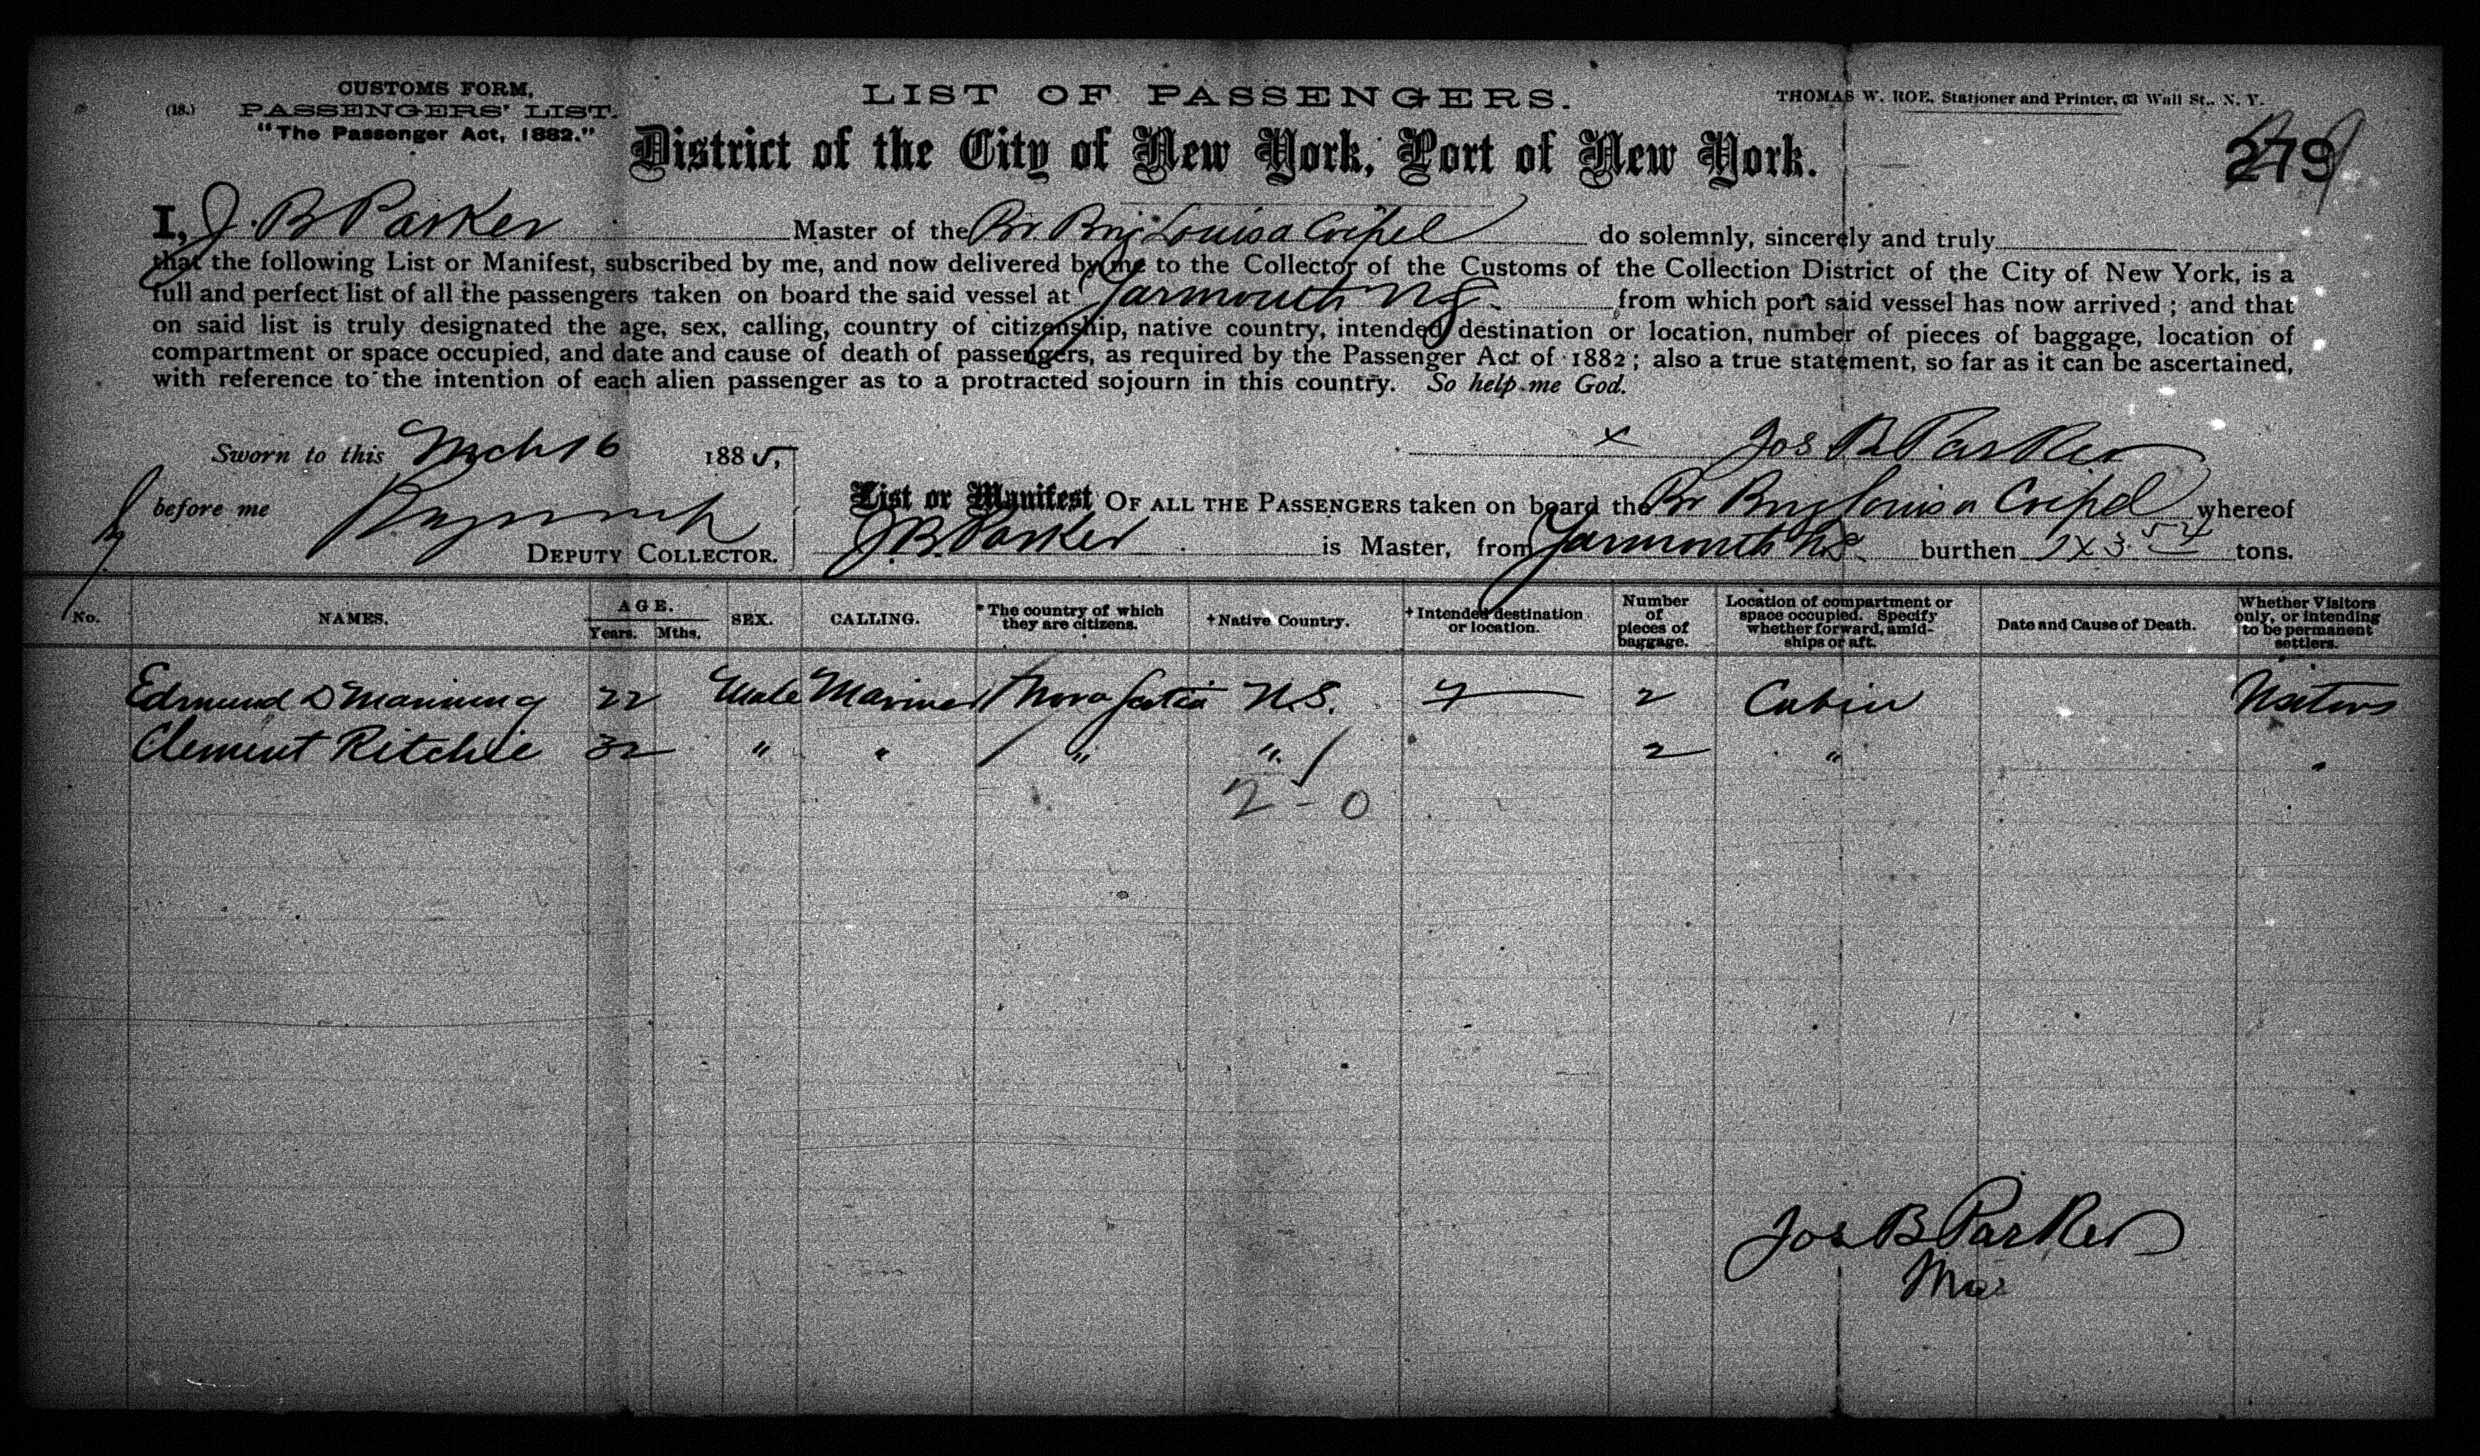 CUSTOMS FORM,
(18.) PASSENGERS' LIST.
"The Passenger Act, 1882."
LIST OF PASSENGERS.
THOMAS W. ROE, Stationer and Printer, 63 Wall St., N. Y.
District of the City of New York, Port of New York.
279
I, J. B Parker Master of the Br Brig Louisa Coipel do solemnly, sincerely and truly
that the following List or Manifest, subscribed by me, and now delivered by me to the Collector of the Customs of the Collection District of the City of New York, is a
full and perfect list of all the passengers taken on board the said vessel at Yarmouth N.S. from which port said vessel has now arrived; and that
on said list is truly designated the age, sex, calling, country of citizenship, native country, intended destination or location, number of pieces of baggage, location of
compartment or space occupied, and date and cause of death of passengers, as required by the Passenger Act of 1882; also a true statement, so far as it can be ascertained,
with reference to the intention of each alien passenger as to a protracted sojourn in this country. So help me God.
Sworn to this Mch 16 1885,
x Jos B Parker
before me
DEPUTY COLLECTOR.
List or Manifest OF ALL THE PASSENGERS taken on board the Br Brig Louisa Coipel whereof
J. B. Parker is Master, from Yarmouth N.S. burthen tons.
No. NAMES. AGE. Years. Mths. SEX. CALLING. *The country of which they are citizens. +Native Country. +Intended destination or location. Number of pieces of baggage. Location of compartment or space occupied. Specify whether forward, amidships or aft. Date and Cause of Death. Whether Visitors only, or intending to be permanent settlers.
Edmund D Manning 22 Male Mariner Nova Scotia N.S. 2 Cabin Visitors
Clement Ritchie 32 " " " " 2 " "
2 - 0
Jos B Parker